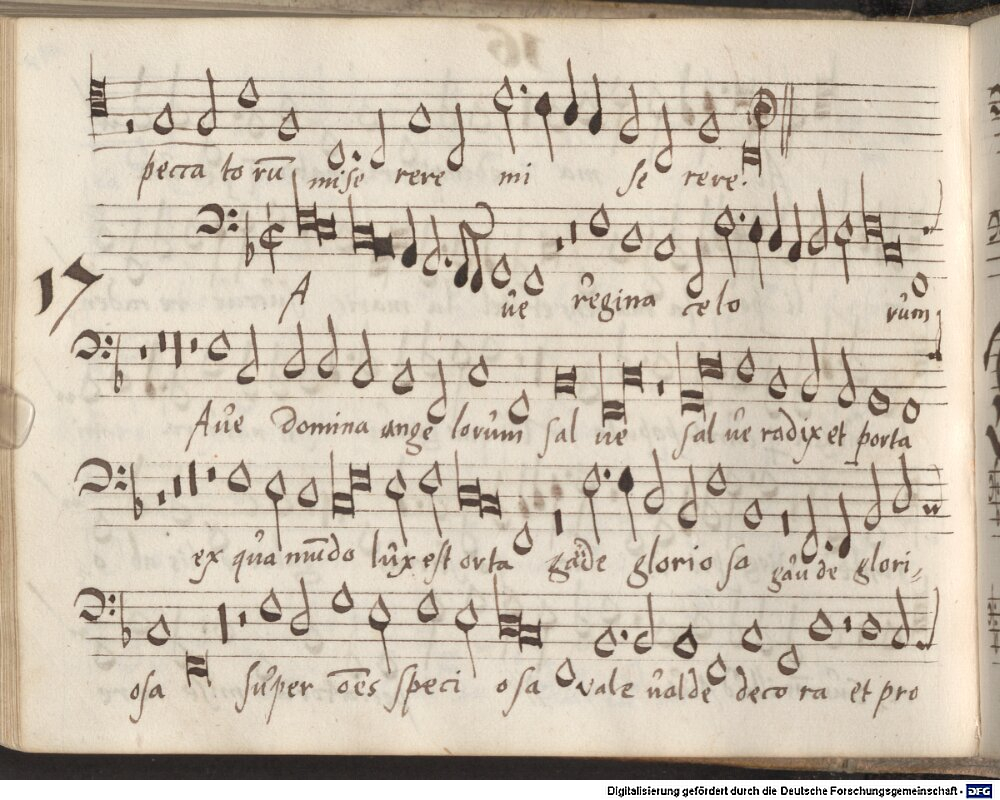 pecca to rū mise rere mi se rere.
17
A ue regina celo rum
Aue domina ange lorum sal ue sal ue radix et porta
ex qua mūdo lux est orta gade glorio sa gau de glori-
osa super oēs speci osa vale valde deco ra et pro
Digitalisierung gefördert durch die Deutsche Forschungsgemeinschaft - DFG